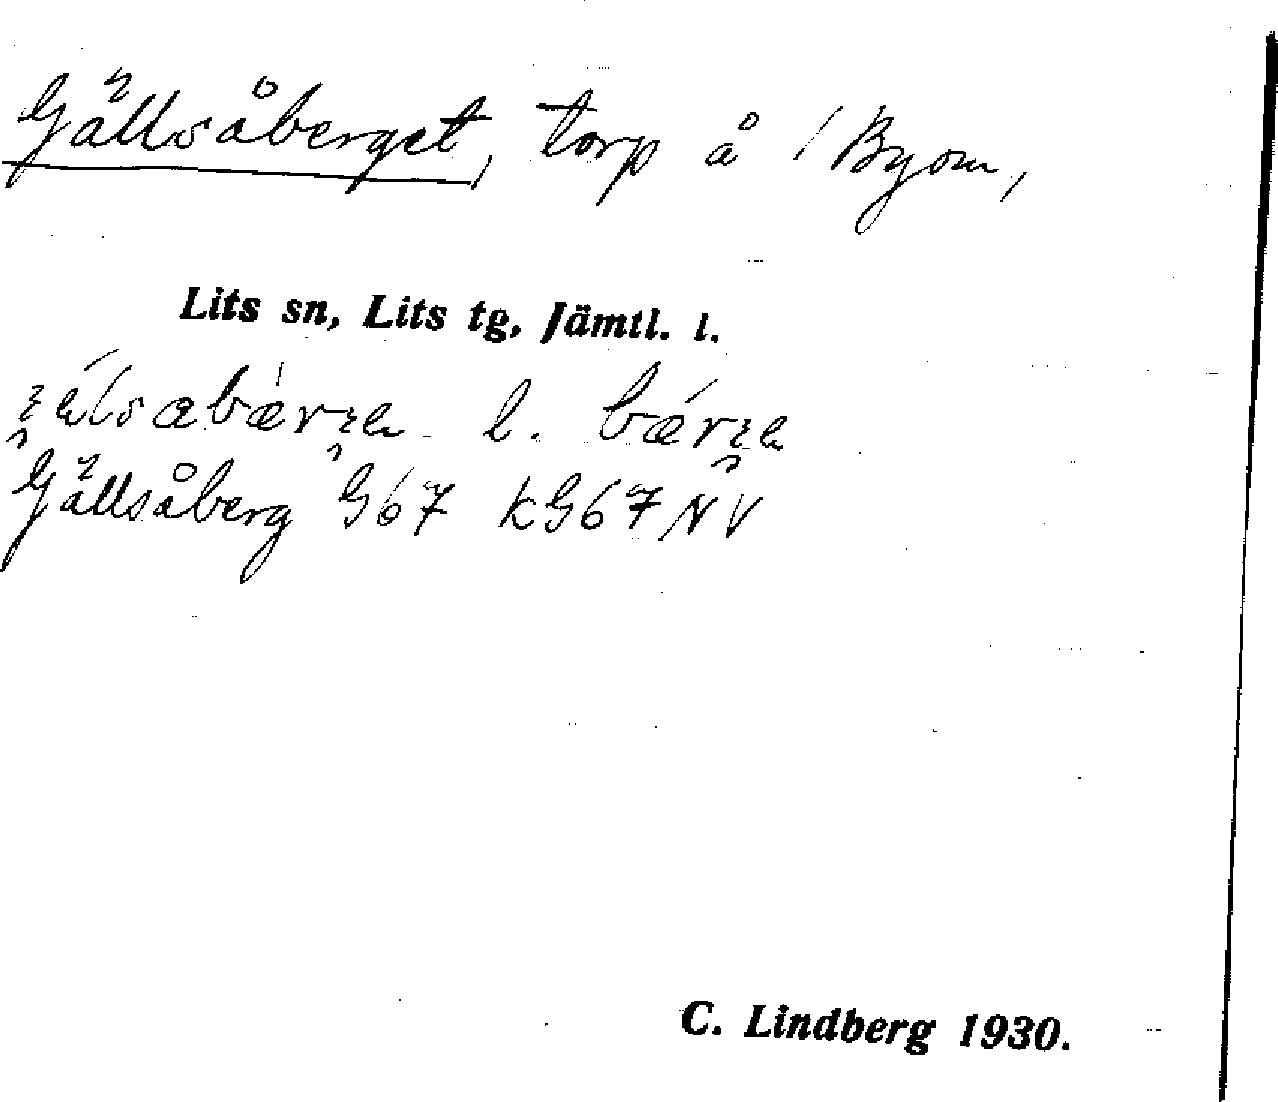 Gällsåberget, torp å / Byom,
Lits sn, Lits tg, Jämtl. l.
l.
Gällsåberg G67 kG67NV
C. Lindberg 1930.